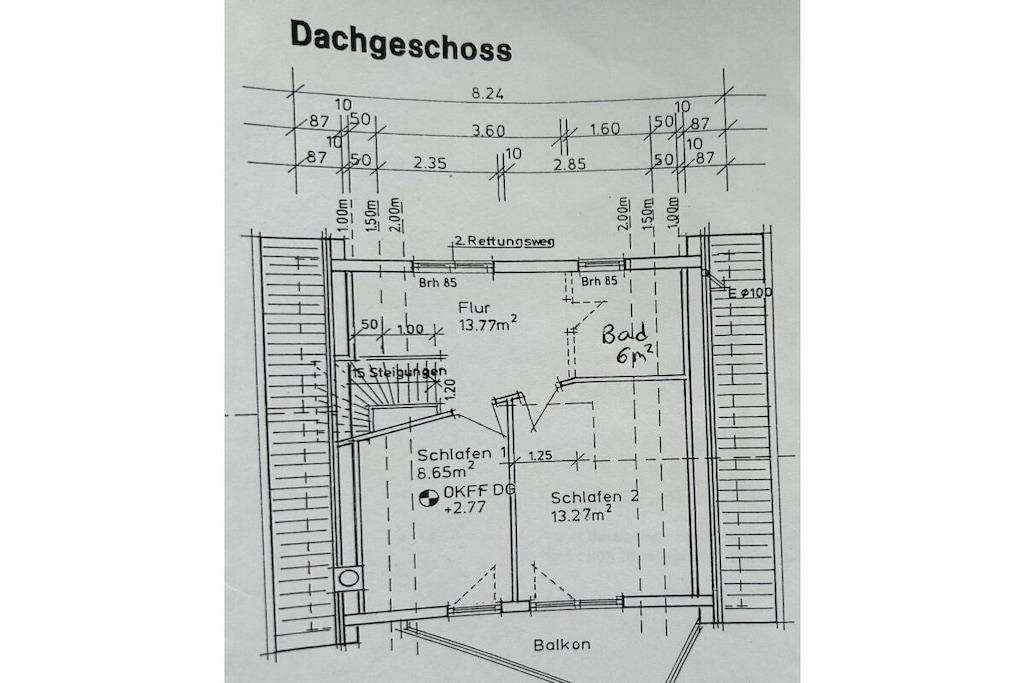 Dachgeschoss
8.24
10 10
87 50 3.60 1.60 50 87
10 10 10
87 50 2.35 2.85 50 87
1.00m 1.50m 2.00m 2.00m 1.50m 1.00m
2. Rettungsweg
Brh 85 Brh 85
E ø100
Flur
13.77m²
Bad
6m²
50 1.00
15 Steigungen
1.20
Schlafen 1
8.65m²
OKFF DG
+2.77
1.25
Schlafen 2
13.27m²
Balkon